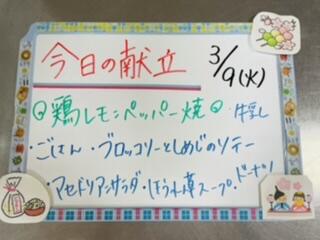 今日の献立 3/9(火)
◎鶏レモンペッパー焼◎ ・牛乳
・ごはん ・ブロッコリーとしめじのソテー
・マセドアンサラダ ・ほうれん草スープ ・ドーナツ